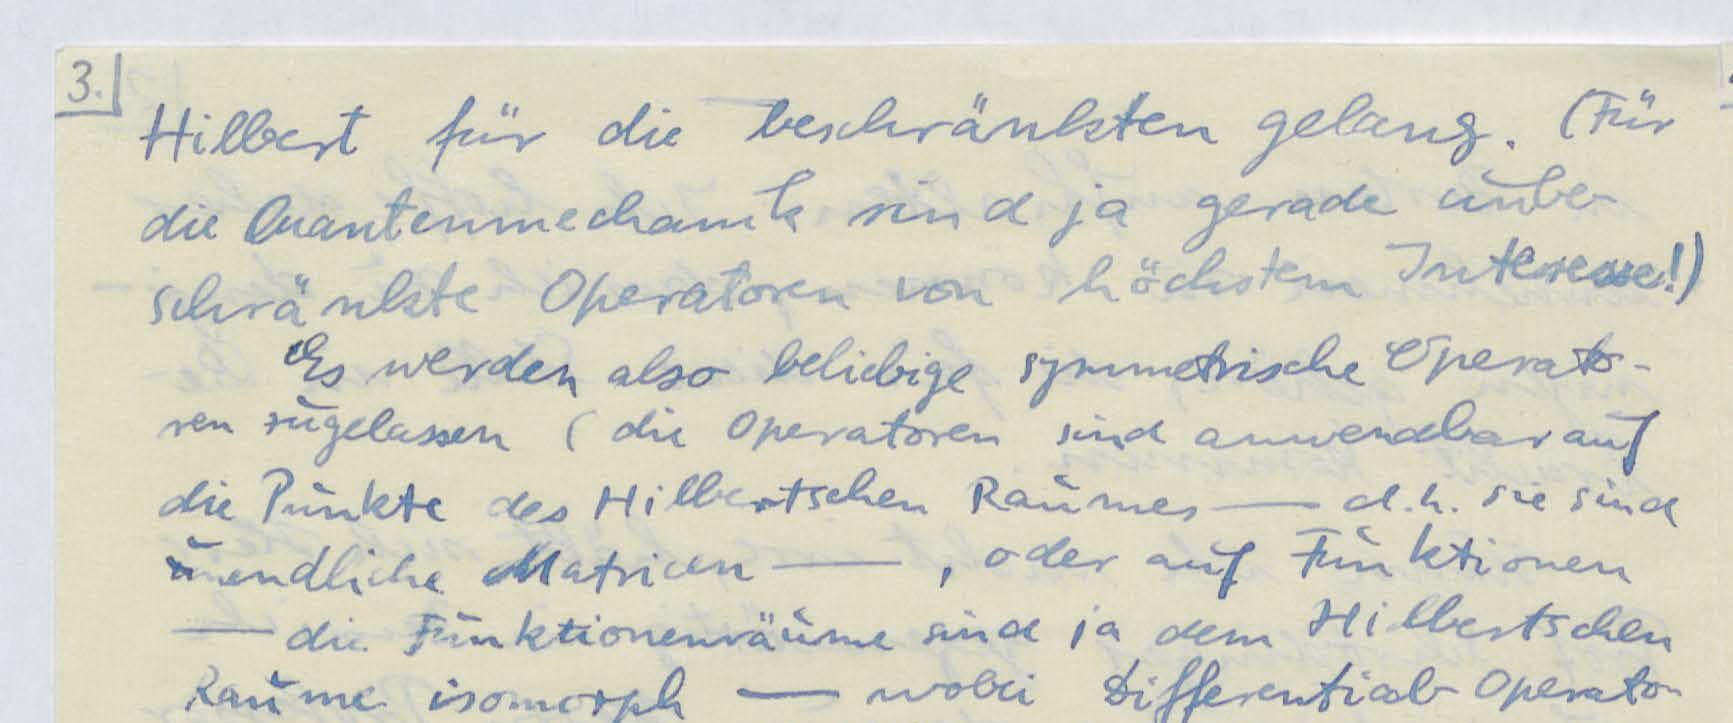 3.
Hilbert für die beschränkten gelang. (Für
die Quantenmechanik sind ja gerade unbe-
schränkte Operatoren von höchstem Interesse!)
Es werden also beliebige symmetrische Operato-
ren zugelassen (die Operatoren sind anwendbar auf
die Punkte des Hilbertschen Raumes — d.h. sie sind
unendliche Matricen — , oder auf Funktionen
— die Funktionenräume sind ja dem Hilbertschen
Raume isomorph — wobei Differential-Operato-